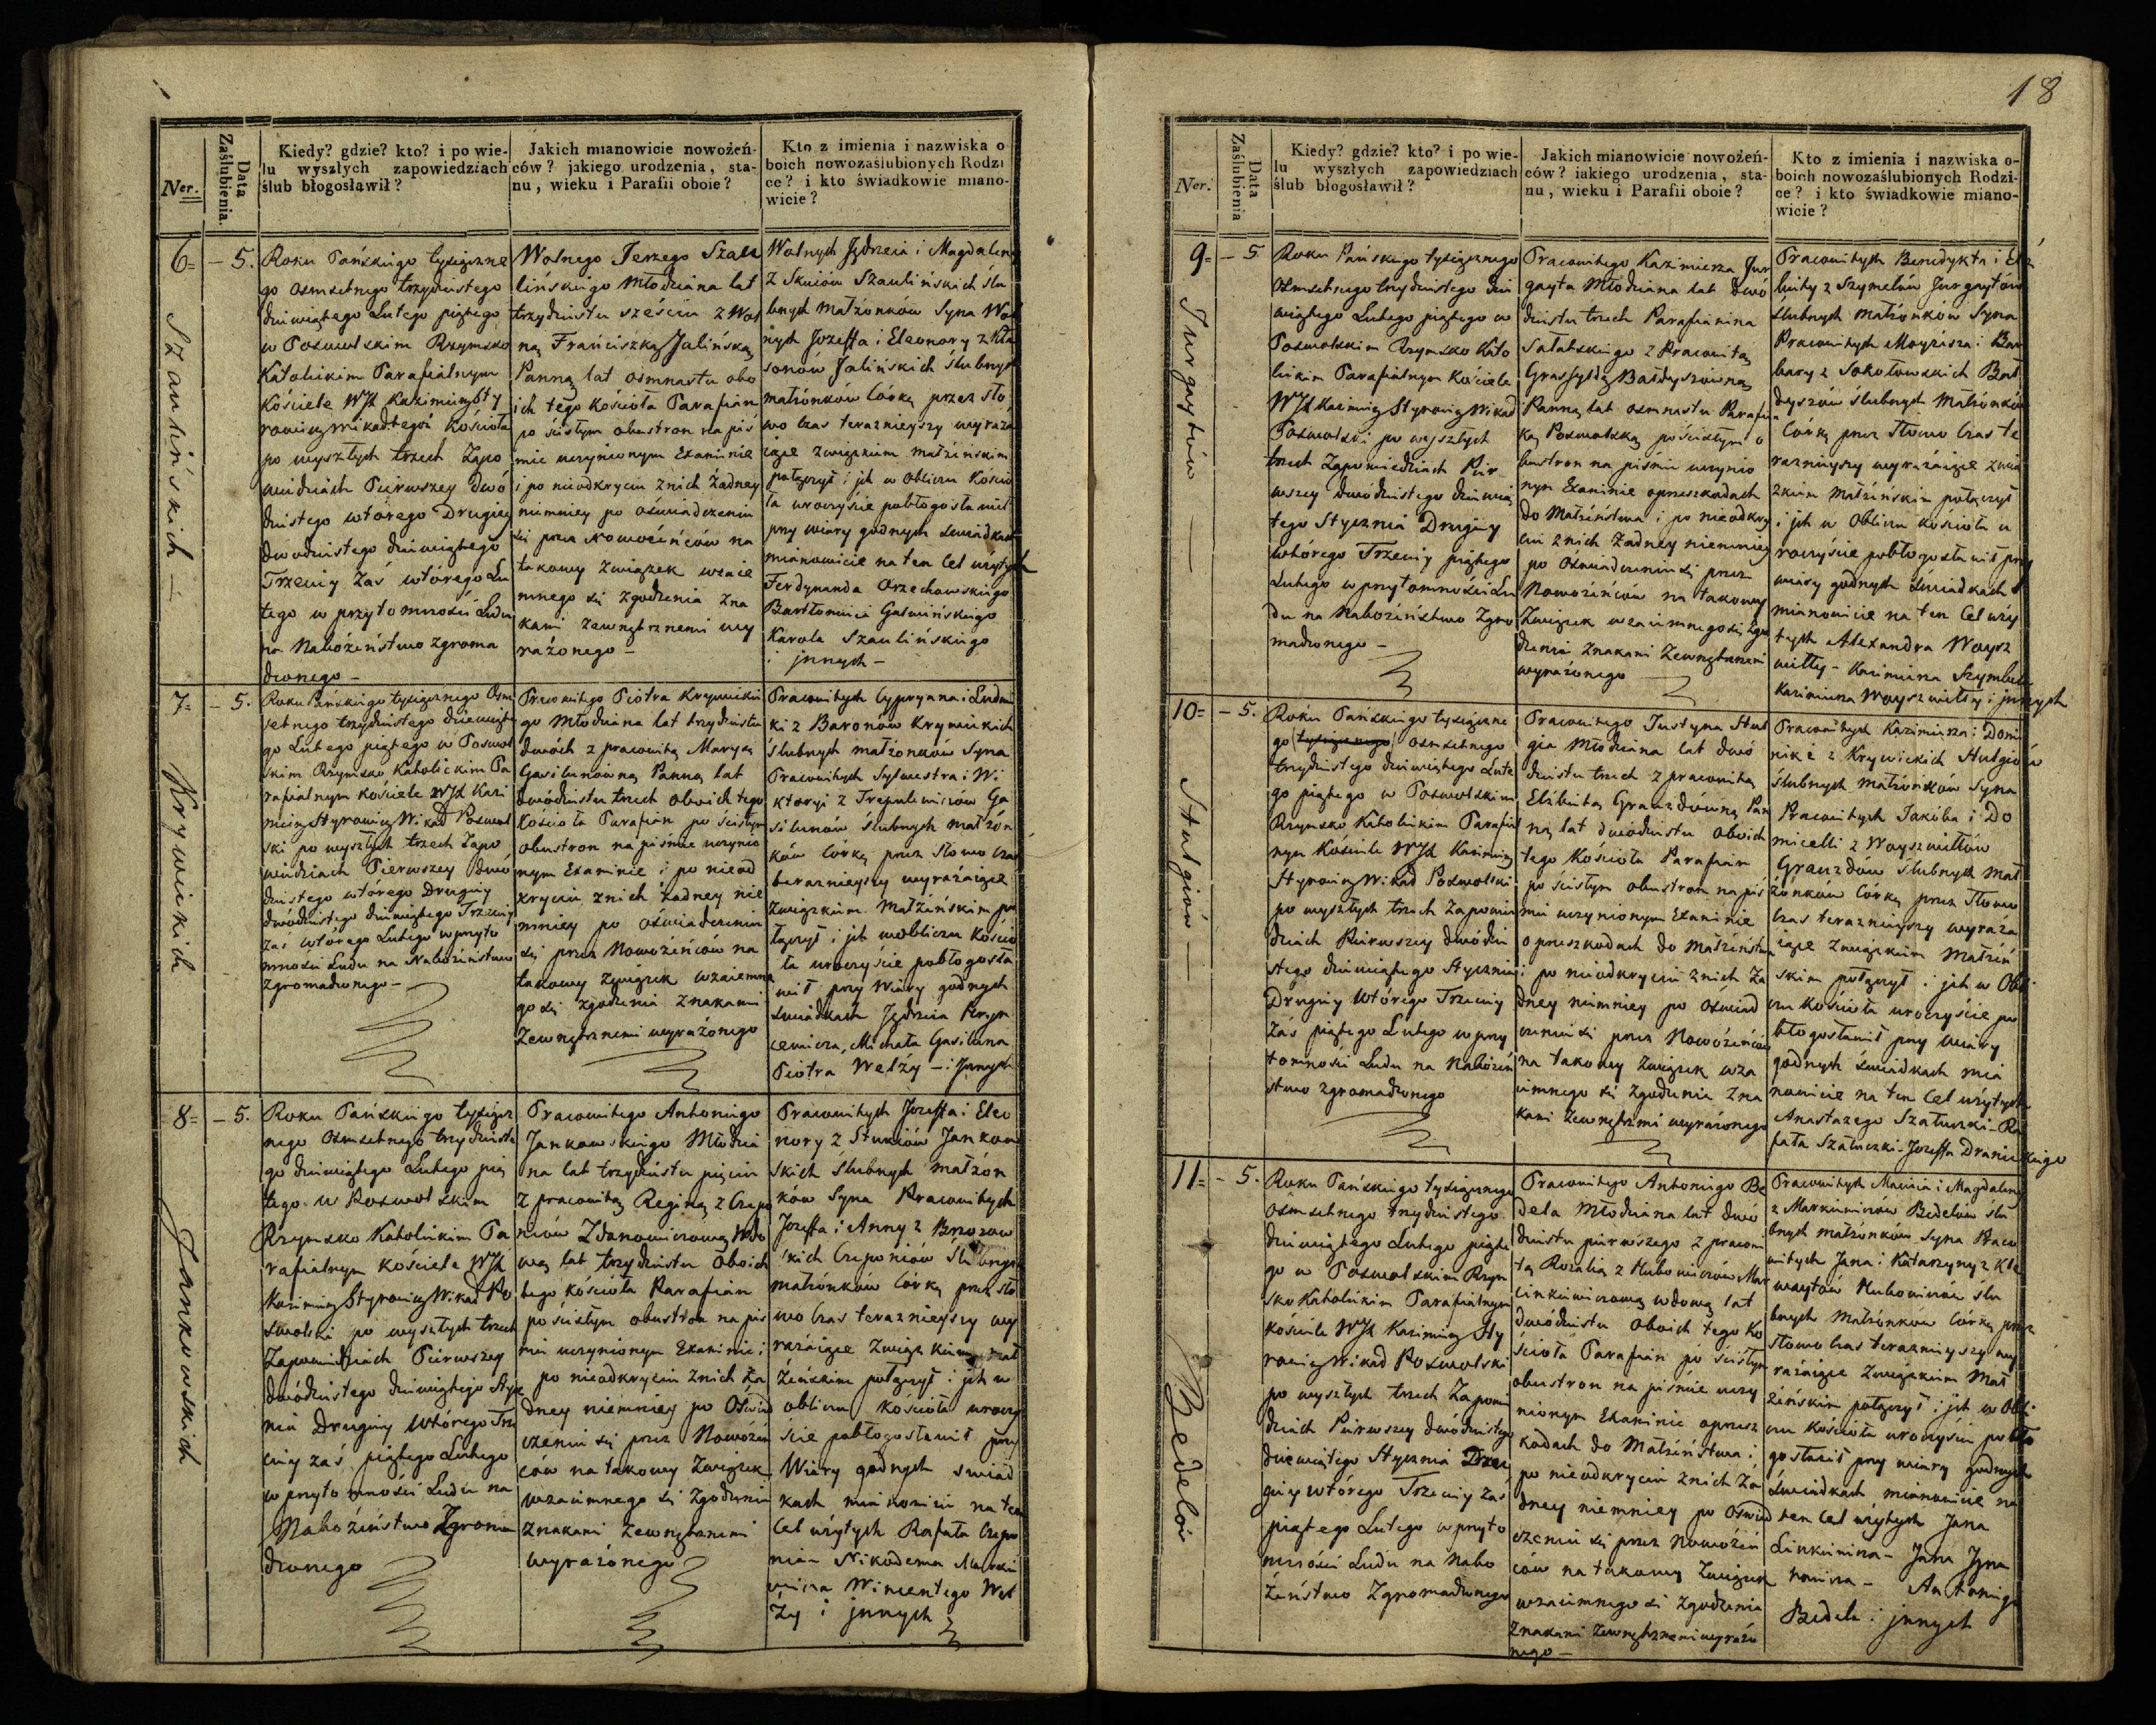 18
Ner.
Data Zaślubienia.
Kiedy? gdzie? kto? i po wie-
lu wyszłych zapowiedziach
ślub błogosławił?
Jakich mianowicie nowożeń-
ców? jakiego urodzenia, sta-
nu, wieku i Parafii oboie?
Kto z imienia i nazwiska o
boich nowozaślubionych Rodzi
ce? i kto świadkowie miano-
wicie?
6 - 5.
Szaulińskich
Roku Pańskiego tysiączne
go osmsetnego trzydziestego
dziewiątego Lutego piątego
w Poswolskim Rzymsko
Katolickim Parafialnym
Kościele WJX Kazimierz Sty
rowicz Wikad tegoż Kościoła
po wyszłych trzech Zapo
wiedziach Pierwszey dwó
dziestego wtórego Drugiey
dwodziestego dziewiątego
Trzeciey zaś wtórego Lu
tego w przytomności Ludu
na Nabożeństwo zgroma
dzonego -
Wolnego Jerzego Szau
lińskiego Młodziana lat
trzydziestu sześciu z Wol
ną Franciszką Jalińską
Panną lat osmnastu obo
ich tego Kościoła Parafian
po ścisłym obustron na piś
mie uczynionym Examinie
i po nieodkryciu z nich żadney
niemniey po oświadczeniu
się przez Nowożeńców na
takowy związek wzaie
mnego się zgodzenia zna
kami zewnętrznemi wy
rażonego -
Wolnych Jędrzeia i Magdaleny
z Skuiów Szaulińskich ślu
bnych Małżonków Syna Wol
nych Jozeffa i Eleonory z
sonów Jalińskich ślubnych
małżonków Córkę przez sło
wo czas teraznieyszy wyraża
iące związkiem małżeńskim
połączył i ich w obliczu Kościo
ła uroczyście pobłogosławił
przy wiary godnych świadkach
mianowicie na ten cel użytych
Ferdynanda Orzechowskiego
Bartłomieia Gasinińskiego
Karola Szaulińskiego
i jnnych -
7 - 5.
Krywickich
Roku Pańskiego tysiącznego Osm
setnego trzydziestego dziewiąte
go Lutego piątego w Poswol
skim Rzymsko Katolickim Pa
rafialnym Kościele WJX Kazi
mierz Styrowicz Wikad Poswol
ski po wyszłych trzech Zapo
wiedziach Pierwszey dwó
dziestego wtórego Drugiey
dwódziestego dziewiątego Trzeciey
zaś wtórego Lutego w przyto
mności Ludu na Nabożeństwo
zgromadzonego -
Pracowitego Piotra Krywickie
go Młodziana lat trzydziestu
dwóch z pracowitą Maryą
Gasilunówną Panną lat
dwódziestu trzech obóich tego
Kościoła Parafian po ścisłym
obustron na piśmie uczynio
nym Examinie i po nieod
kryciu z nich żadney nie
mniey po oświadczeniu
się przez Nowożeńców na
takowy związek wzaiemne
go się zgodzenia znakami
zewnętrznemi wyrażonego
Pracowitych Cypryana i Ludwi
ki z Baronów Krywickich
ślubnych małżonków Syna
Pracowitych Sylwestra i Wi
ktoryi z Trepulewiczów Ga
silunów ślubnych małżon
ków Córkę przez słowo czas
teraznieyszy wyrażaiące
związkiem Małżeńskim po
łączył i ich w obliczu Kościo
ła uroczyście pobłogosła
wił przy Wiary godnych
świadkach Jędrzeia
cewicza, Michała Gasiluna
Piotra Welży - i Jnnych
8 - 5.
Jankowskich
Roku Pańskiego tysiącz
nego osmsetnego trzydzieste
go dziewiątego Lutego pią
tego w Poswolskim
Rzymsko Katolickim Pa
rafialnym Kościele WJX
Kazimierz Styrowicz Wikad Po
swolski po wyszłych trzech
Zapowiedziach Pierwszey
dwódziestego dziewiątego Stycz
nia Drugiey wtórego Trze
ciey zaś piątego Lutego
w przytomności Ludu na
Nabożeństwo Zgroma
dzonego
Pracowitego Antoniego
Jankowskiego Młodzia
na lat trzydziestu pięciu
z pracowitą Reginą z Czepo
niów Zdanowiczową Wdo
wą lat trzydziestu oboich
tego Kościoła Parafian
po ścisłym obustron na piś
mie uczynionym Examinie i
po nieodkryciu z nich ża
dney niemniey po Oświad
czeniu się przez Nowożeń
ców na takowy związek
wzaiemnego się zgodzenia
znakami zewnętrznemi
wyrażonego
Pracowitych Jozeffa i Eleo
nory z Stuniów Jankow
skich ślubnych małżon
ków Syna Pracowitych
Jozeffa i Anny z Brzozow
skich Czeponiów ślubnych
małżonków Córkę przez sło
wo czas teraznieyszy wy
rażaiące związkiem mał
żeńskim połączył i ich w
obliczu Kościoła uroczy
ście pobłogosławił przy
Wiary godnych świad
kach mianowicie na ten
cel użytych Rafała Czepo
nia - Nikodema
wicza Wincentego Wel
ży i jnnych
Ner.
Data Zaślubienia
Kiedy? gdzie? kto? i po wie-
lu wyszłych zapowiedziach
ślub błogosławił?
Jakich mianowicie nowożeń-
ców? iakiego urodzenia, sta-
nu, wieku i Parafii oboie?
Kto z imienia i nazwiska o-
boich nowozaślubionych Rodzi-
ce? i kto świadkowie miano-
wicie?
9 - 5
Jurgaytów
Roku Pańskiego tysiącznego
Osmsetnego trzydziestego dzie
wiątego Lutego piątego w
Poswolskim Rzymsko Kato
lickim Parafialnym Kościele
WJX Kazimierz Styrowicz Wikad
Poswolski po wyszłych
trzech Zapowiedziach Pier
wszey dwódziestego dziewią
tego Stycznia Drugiey
wtórego Trzeciey piątego
Lutego w przytomności Lu
du na Nabożeństwo Zgro
madzonego -
Pracowitego Kazimierza Jur
gayta Młodziana lat dwó
dziestu trzech Parafianina
Sałatskiego z Pracowitą
Grassyldą Bałdyszówną
Panną lat osmnastu Parafian
ką Poswolską po ścisłym o
bustron na piśmie uczynio
nym Examinie o przeszkodach
do Małżeństwa i po nieodkry
ciu z nich żadney niemniey
po Oświadczeniu się przez
Nowożeńców na takowy
Związek wzaiemnego się zgo
dzenia znakami zewnętrznemi
wyrażonego
Pracowitych Benedykta i Elż
biety z Szymelów Jurgaytów
ślubnych Małżonków Syna
Pracowitych Moyżesza i Bar
bary z Sokołowskich Bał
dyszów ślubnych Małżonków
Córkę przez słowo czas te
raznieyszy wyrażaiące zwią
zkiem Małżeńskim połączył
i ich w Obliczu Kościoła u
roczyście pobłogosławił przy
wiary godnych świadkach
mianowicie na ten Cel uży
tych Alexandra Woysz
wiłły - Kazimierza Szymbela
Kazimierza Woyszwiłły i jnnych
10 - 5.
Stulgiów
Roku Pańskiego tysiączne
go (tysiącznego) osmsetnego
trzydziestego dziewiątego Lute
go piątego w Poswolskim
Rzymsko Katolickim Parafial
nym Kościele WJX Kazimierz
Styrowicz Wikad Poswolski
po wyszłych trzech Zapowie
dziach Pierwszey dwódzie
stego dziewiątego Stycznia
Drugiey Wtórego Trzeciey
zaś piątego Lutego w przy
tomności Ludu na Nabożeń
stwo zgromadzonego
Pracowitego Justyna Stul
gia Młodziana lat dwó
dziestu trzech z pracowitą
Elżbietą Grauzdówną Pan
ną lat dwódziestu oboich
tego Kościoła Parafian
po ścisłym obustron na piś
mie uczynionym Examinie
o przeszkodach do Małżeństwa
i po nieodkryciu z nich ża
dney niemniey po oświad
czeniu się przez Nowożeńców
na takowy związek wza
iemnego się zgodzenia zna
kami zewnętrznemi wyrażonego
Pracowitych Kazimierza i Domi
niki z Krywickich Stulgiów
ślubnych Małżonków Syna
Pracowitych Jakóba i Do
micelli z Woyszwiłłów
Grauzdów ślubnych Mał
żonków Córkę przez słowo
czas teraznieyszy wyraża
iące związkiem Małżeń
skim połączył i ich w Obli
czu Kościoła uroczyście po
błogosławił przy wiary
godnych świadkach mia
nowicie na ten Cel użytych
Anastazego Szałuczki - Ra
fała Szałuczki - Jozeffa Dranickiego
11 - 5.
Bedelów
Roku Pańskiego tysiącznego
Osmsetnego trzydziestego
dziewiątego Lutego piąte
go w Poswolskim Rzym
sko Katolickim Parafialnym
Kościele WJX Kazimierz Sty
rowicz Wikad Poswolski
po wyszłych trzech Zapowie
dziach Pierwszey dwódziestego
dziewiątego Stycznia Dru
giey wtórego Trzeciey zaś
piątego Lutego w przyto
mności Ludu na Nabo
żeństwo Zgromadzonego
Pracowitego Antoniego Be
dela Młodziana lat dwó
dziestu pierwszego z pracowi
tą Rozalią z Hubowiczów Mar
cinkiewiczową wdową lat
dwódziestu oboich tego Ko
ścioła Parafian po ścisłym
obustron na piśmie uczy
nionym Examinie o przesz
kodach do Małżeństwa i
po nieodkryciu z nich ża
dney niemniey po Oświad
czeniu się przez Nowożeń
ców na takowy Związek
wzaiemnego się zgodzenia
znakami zewnętrznemi wyrażo
nego -
Pracowitych Macieia i Magdaleny
z Markiewiczów Bedelów ślu
bnych małżonków Syna Praco
witych Jana i Katarzyny z
Hubowiczów ślu
bnych Małżonków Córkę przez
słowo czas teraznieyszy wy
rażaiące Związkiem Mał
żeńskim połączył i ich w Obli
czu Kościoła uroczyście pobło
gosławił przy wiary godnych
świadkach mianowicie na
ten cel użytych Jana
Linkiewicza - Jana Igna
towicza - Antoniego
Bedela i jnnych